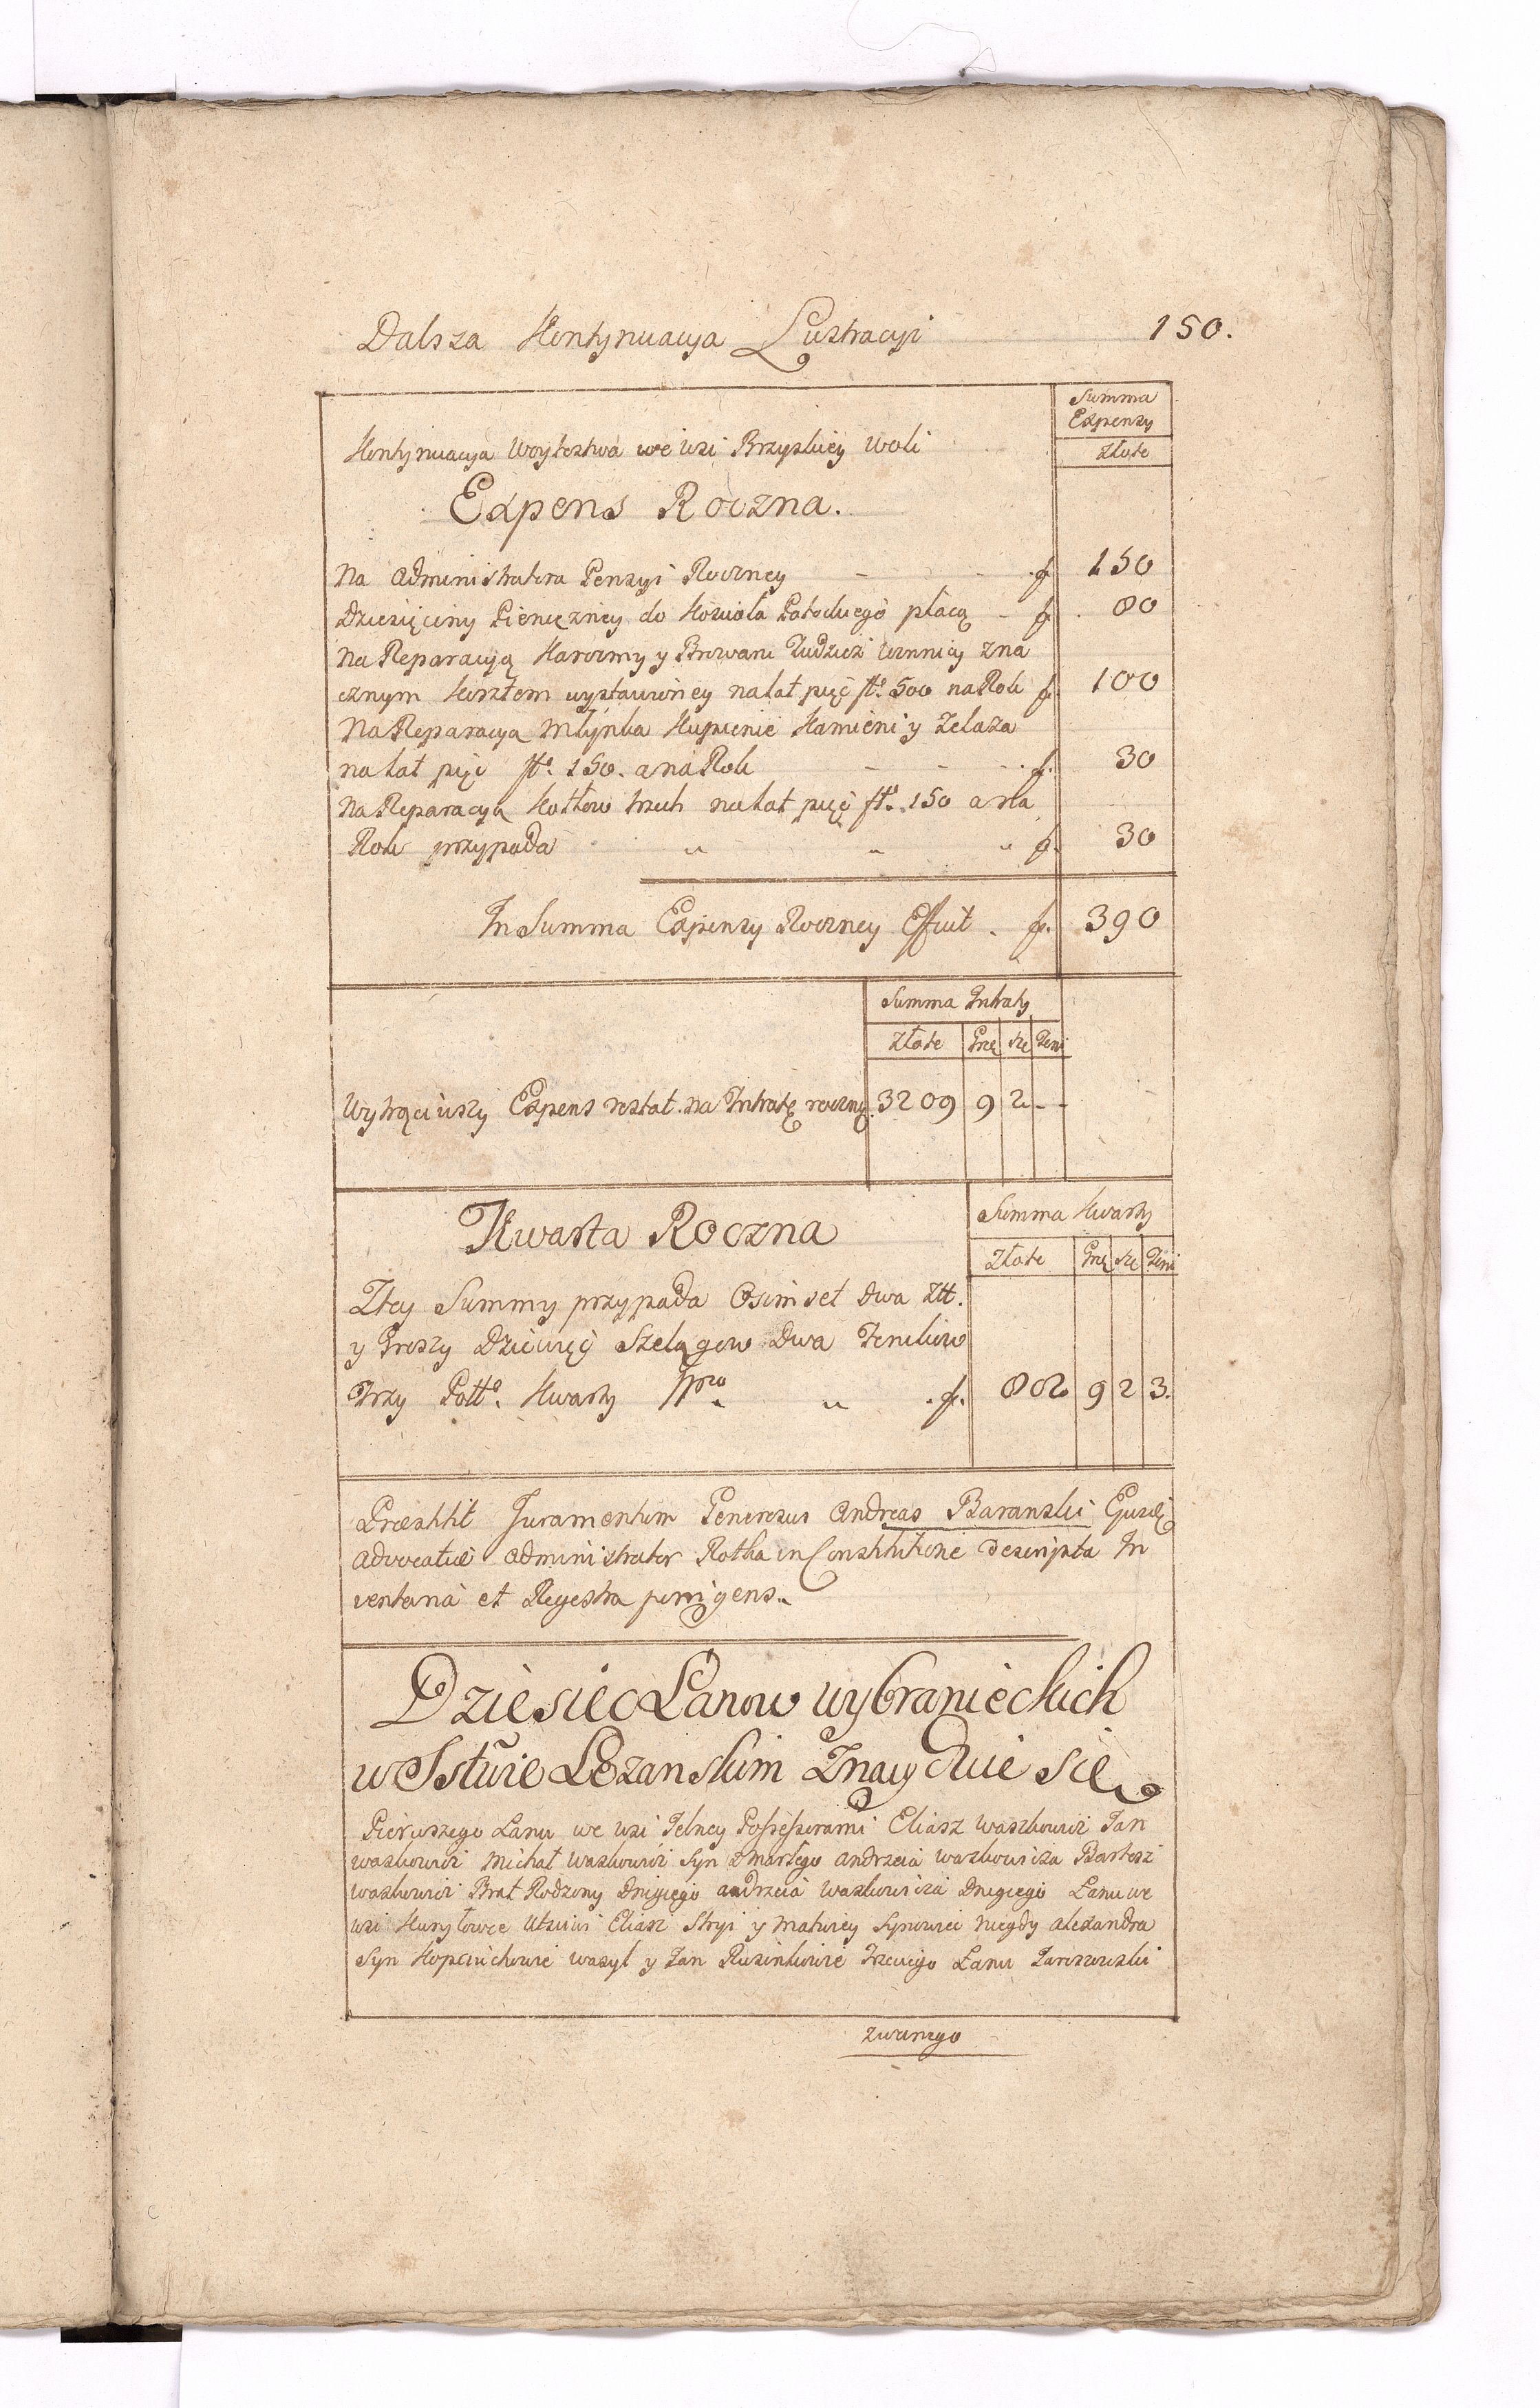 Dalsza Kontynuacya Lustracyi 150.
Summa
Expensy
Kontynuacya Woytostwa we wsi Brzyskiey Woli Złote
Expens Roczna.
Na Administratora Pensyi Roczney - - f. 150
Dziesięciny Pieniężney do Kościoła Łackiego płacą - f. 80
Na Reparacyą Karczmy y Browaru Tudzież Winnicy zna
cznym Kosztem wystawioney na lat pięć ft. 500 na Rok f. 100
Na Reparacyą Młynka Kupienie Kamieni y Zelaza
na lat pięć ft. 150. a na Rok - - - f. 30
Na Reparacyą Kotłow trzech na lat pięć ft. 150 a na
Rok przypada " " " f. 30
In Summa Expensy Roczney Efficit . f. 390
Summa Intraty
Złote Grę Sze Deni
Wytrąciwszy Expens restat na Intratę roczną. 3209 9 2 - -
Kwarta Roczna
Summa Kwarty
Złote Grę Sze Deni
Z tey Summy przypada Osimset dwa Ztt.
y Groszy Dziewięć Szelągow Dwa Denikow
Trzy Pott. Kwarty " . f. 802 9 2 3.
Præstitit Juramentum Generosus Andreas Baranski Ejusdē
Advocatiæ Administrator Rotha in Constitutione descripta In
ventaria et Regestra porrigens.
Dziesiec Lanow wybranieckich
w Sstwie Lezanskim Znayduie sie
Pierwszego Lanu we wsi Jelney Possessorami Eliasz Waszkowicz Jan
Waszkowicz Michał Waszkowicz Syn zmarłego Andrzeia Waszkowicza Bartosz
Waszkowicz Brat Rodzony Drugiego Andrzeia Waszkowicza Drugiego Lanu we
wsi Kuryłowce Eliasz Stryi y Matwiey Synowiec niegdy Alexandra
Syn Wasyl y Jan Rusinkowie Trzeciego Lanu Jaroszowski
zwanego